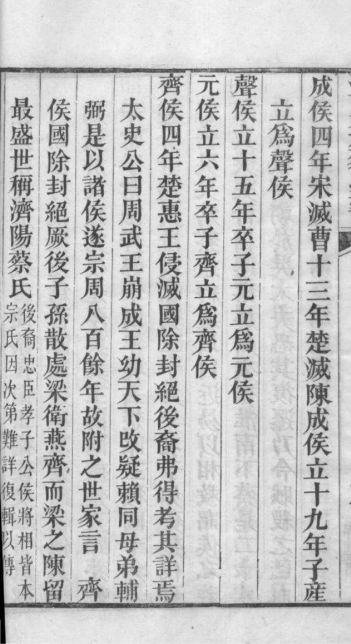 成侯四年宋滅曹十三年楚滅陳成侯立十九年子産
立爲聲侯
聲侯立十五年卒子元立爲元侯
元侯立六年卒子齊立爲齊侯
齊侯四年楚惠王侵滅國除封絕後裔弗得考其詳焉
太史公曰周武王崩成王幼天下旣疑賴同母弟輔
弼是以諸侯遂宗周八百餘年故附之世家言 齊
侯國除封絕厥後子孫散處梁衛燕齊而梁之陳留
最盛世稱濟陽蔡氏後裔忠臣孝子公侯將相皆本
宗氏因次第難詳復輯以傳